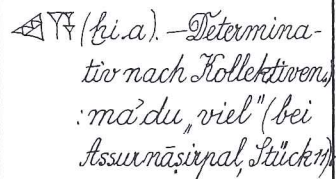 𒄭𒀀 (ḫi.a). — Determina-
tiv nach Kollektiven,
: ma'du „viel" (bei
Assurnāṣirpal, Stück 11)